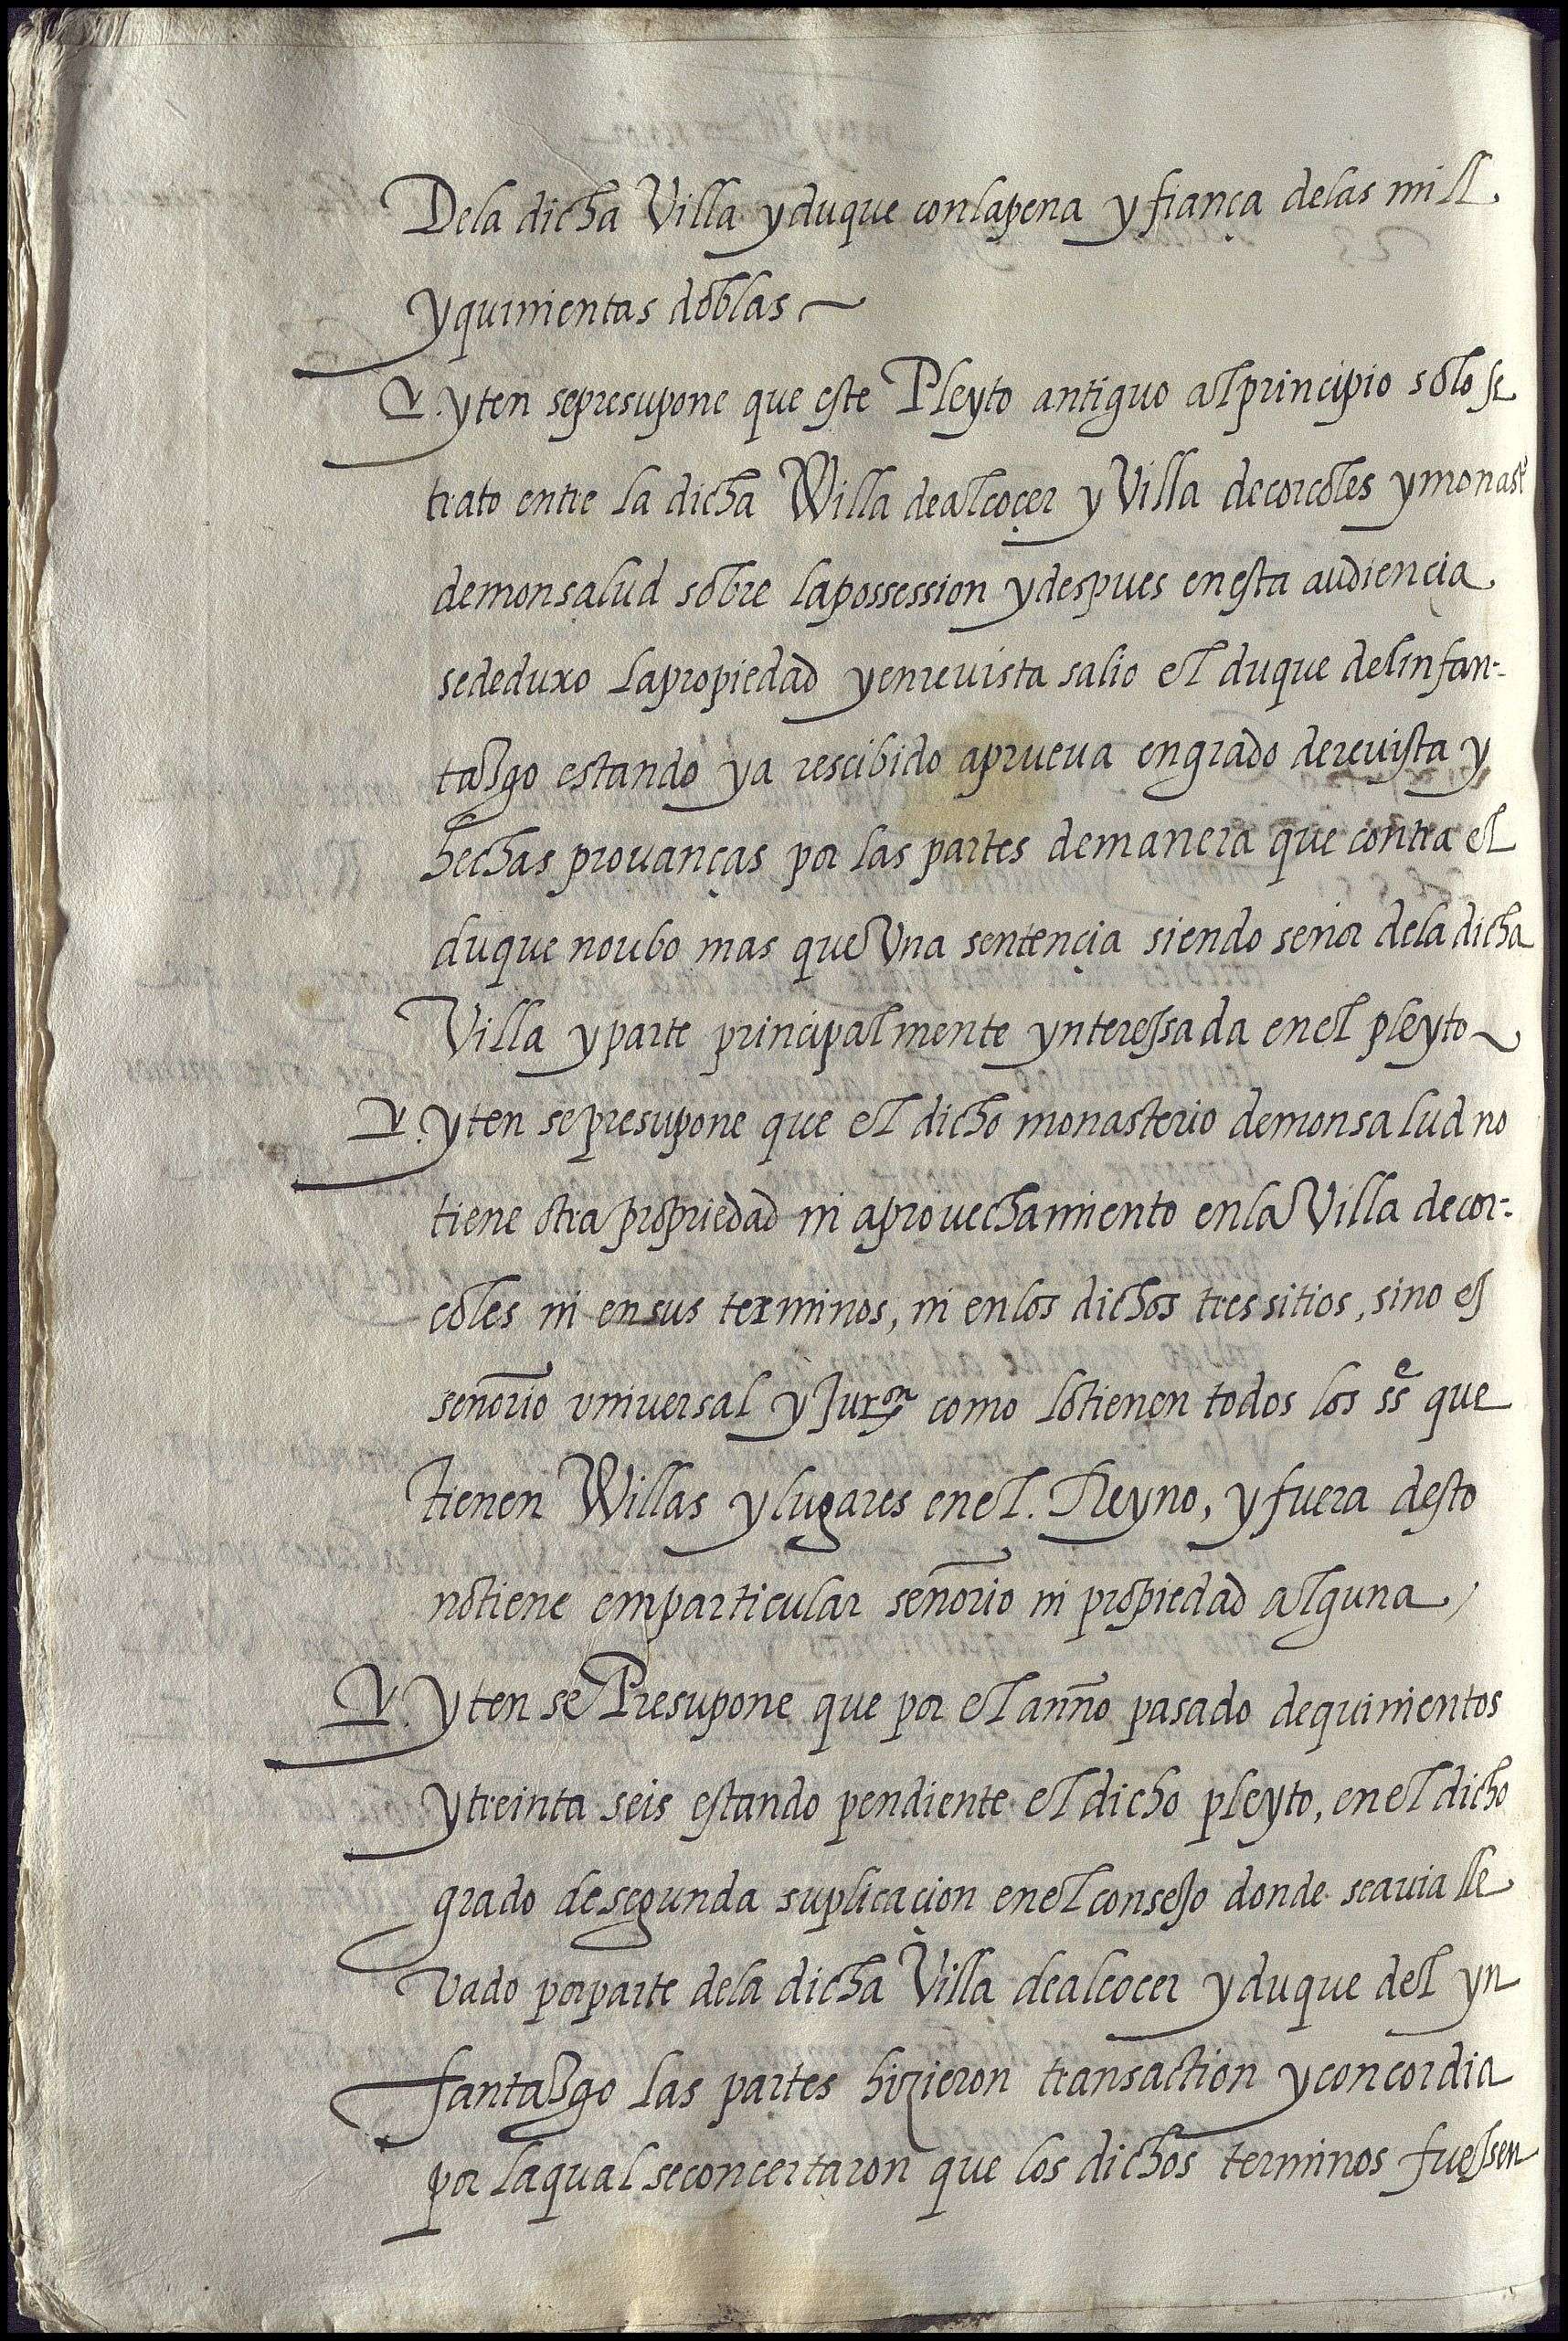 Dela dicha Villa y duque con la pena y fiança delas mill
y quinientas doblas
yten se presupone que este Pleyto antiguo al principio solo se
trato entre la dicha Villa de alcoçer y Villa de corcoles y monasᵒ
de monsalud sobre la possession y despues en esta audiencia
se deduxo la propiedad y en reuista salio el duque del infan-
tazgo estando ya rescibido a prueua en grado de reuista y
hechas prouanças por las partes de manera que contra el
duque no ubo mas que Una sentençia siendo señor dela dicha
Villa y parte principalmente ynteressada en el pleyto
yten se presupone que el dicho monasterio de monsalud no
tiene otra propriedad ni aprouechamiento en la Villa de cor-
coles ni en sus terminos, ni en los dichos tres sitios, sino es
señorio vniuersal y Jurᵒⁿ como lo tienen todos los ssᵉ que
tienen Villas y lugares en el. Reyno, y fuera desto
no tiene em particular señorio ni propiedad alguna
yten se Presupone que por el anño pasado de quinientos
y treinta seis estando pendiente el dicho pleyto, en el dicho
grado de segunda suplicaçion en el consejo donde se auia lle
vado por parte dela dicha Villa de alcocer y duque del yn
fantazgo las partes hizieron transaction y concordia
por la qual se concertaron que los dichos terminos fuessen